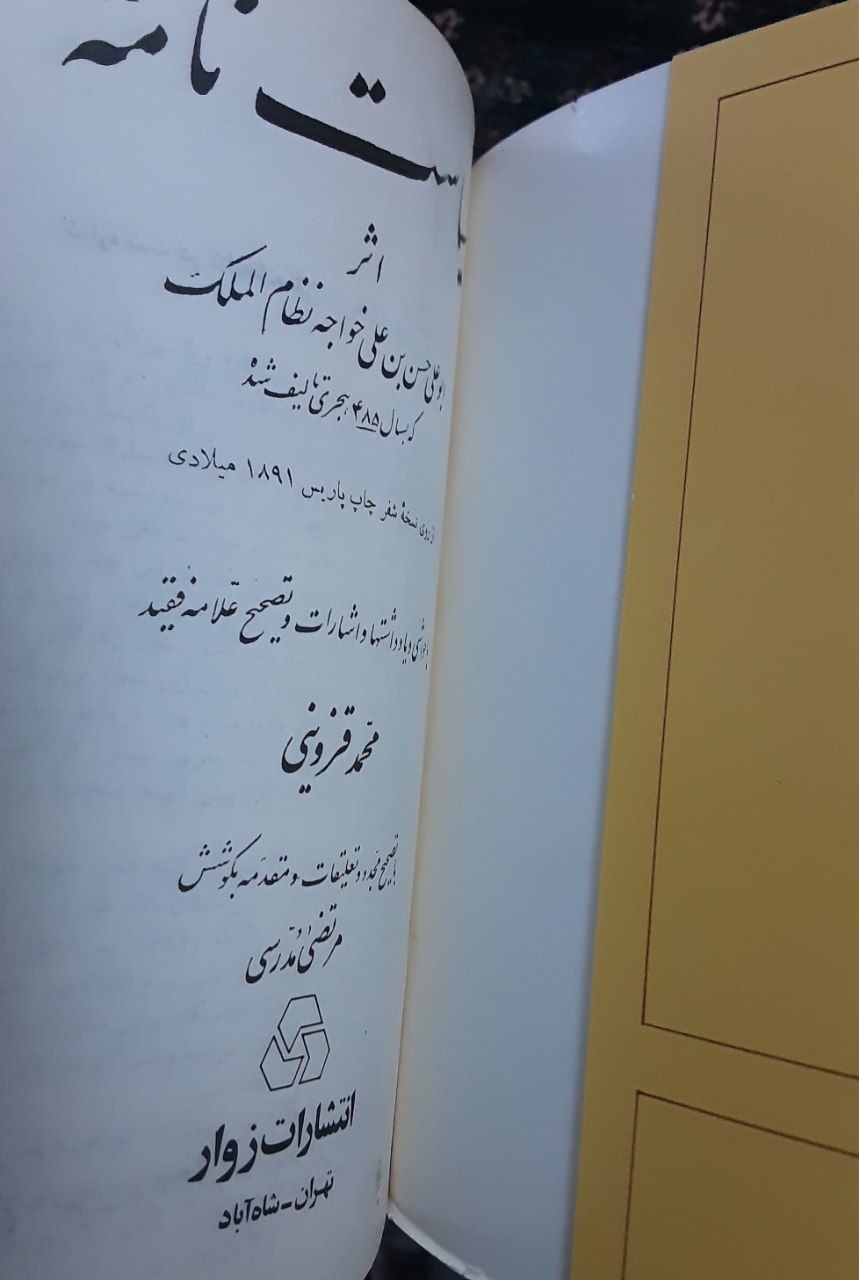 ست نامه
اثر
ابوعلی حسن بن علی خواجه نظام الملک
که بسال ۴۸۵ هجری تألیف شده
از روی نسخهٔ شفر چاپ پاریس ۱۸۹۱ میلادی
با حواشی و یادداشتها و اشارات و تصحیح علامه فقید
محمد قزوینی
با تصحیح مجدد و تعلیقات و مقدمه بکوشش
مرتضی مدرسی
انتشارات زوار
تهران - شاه‌آباد